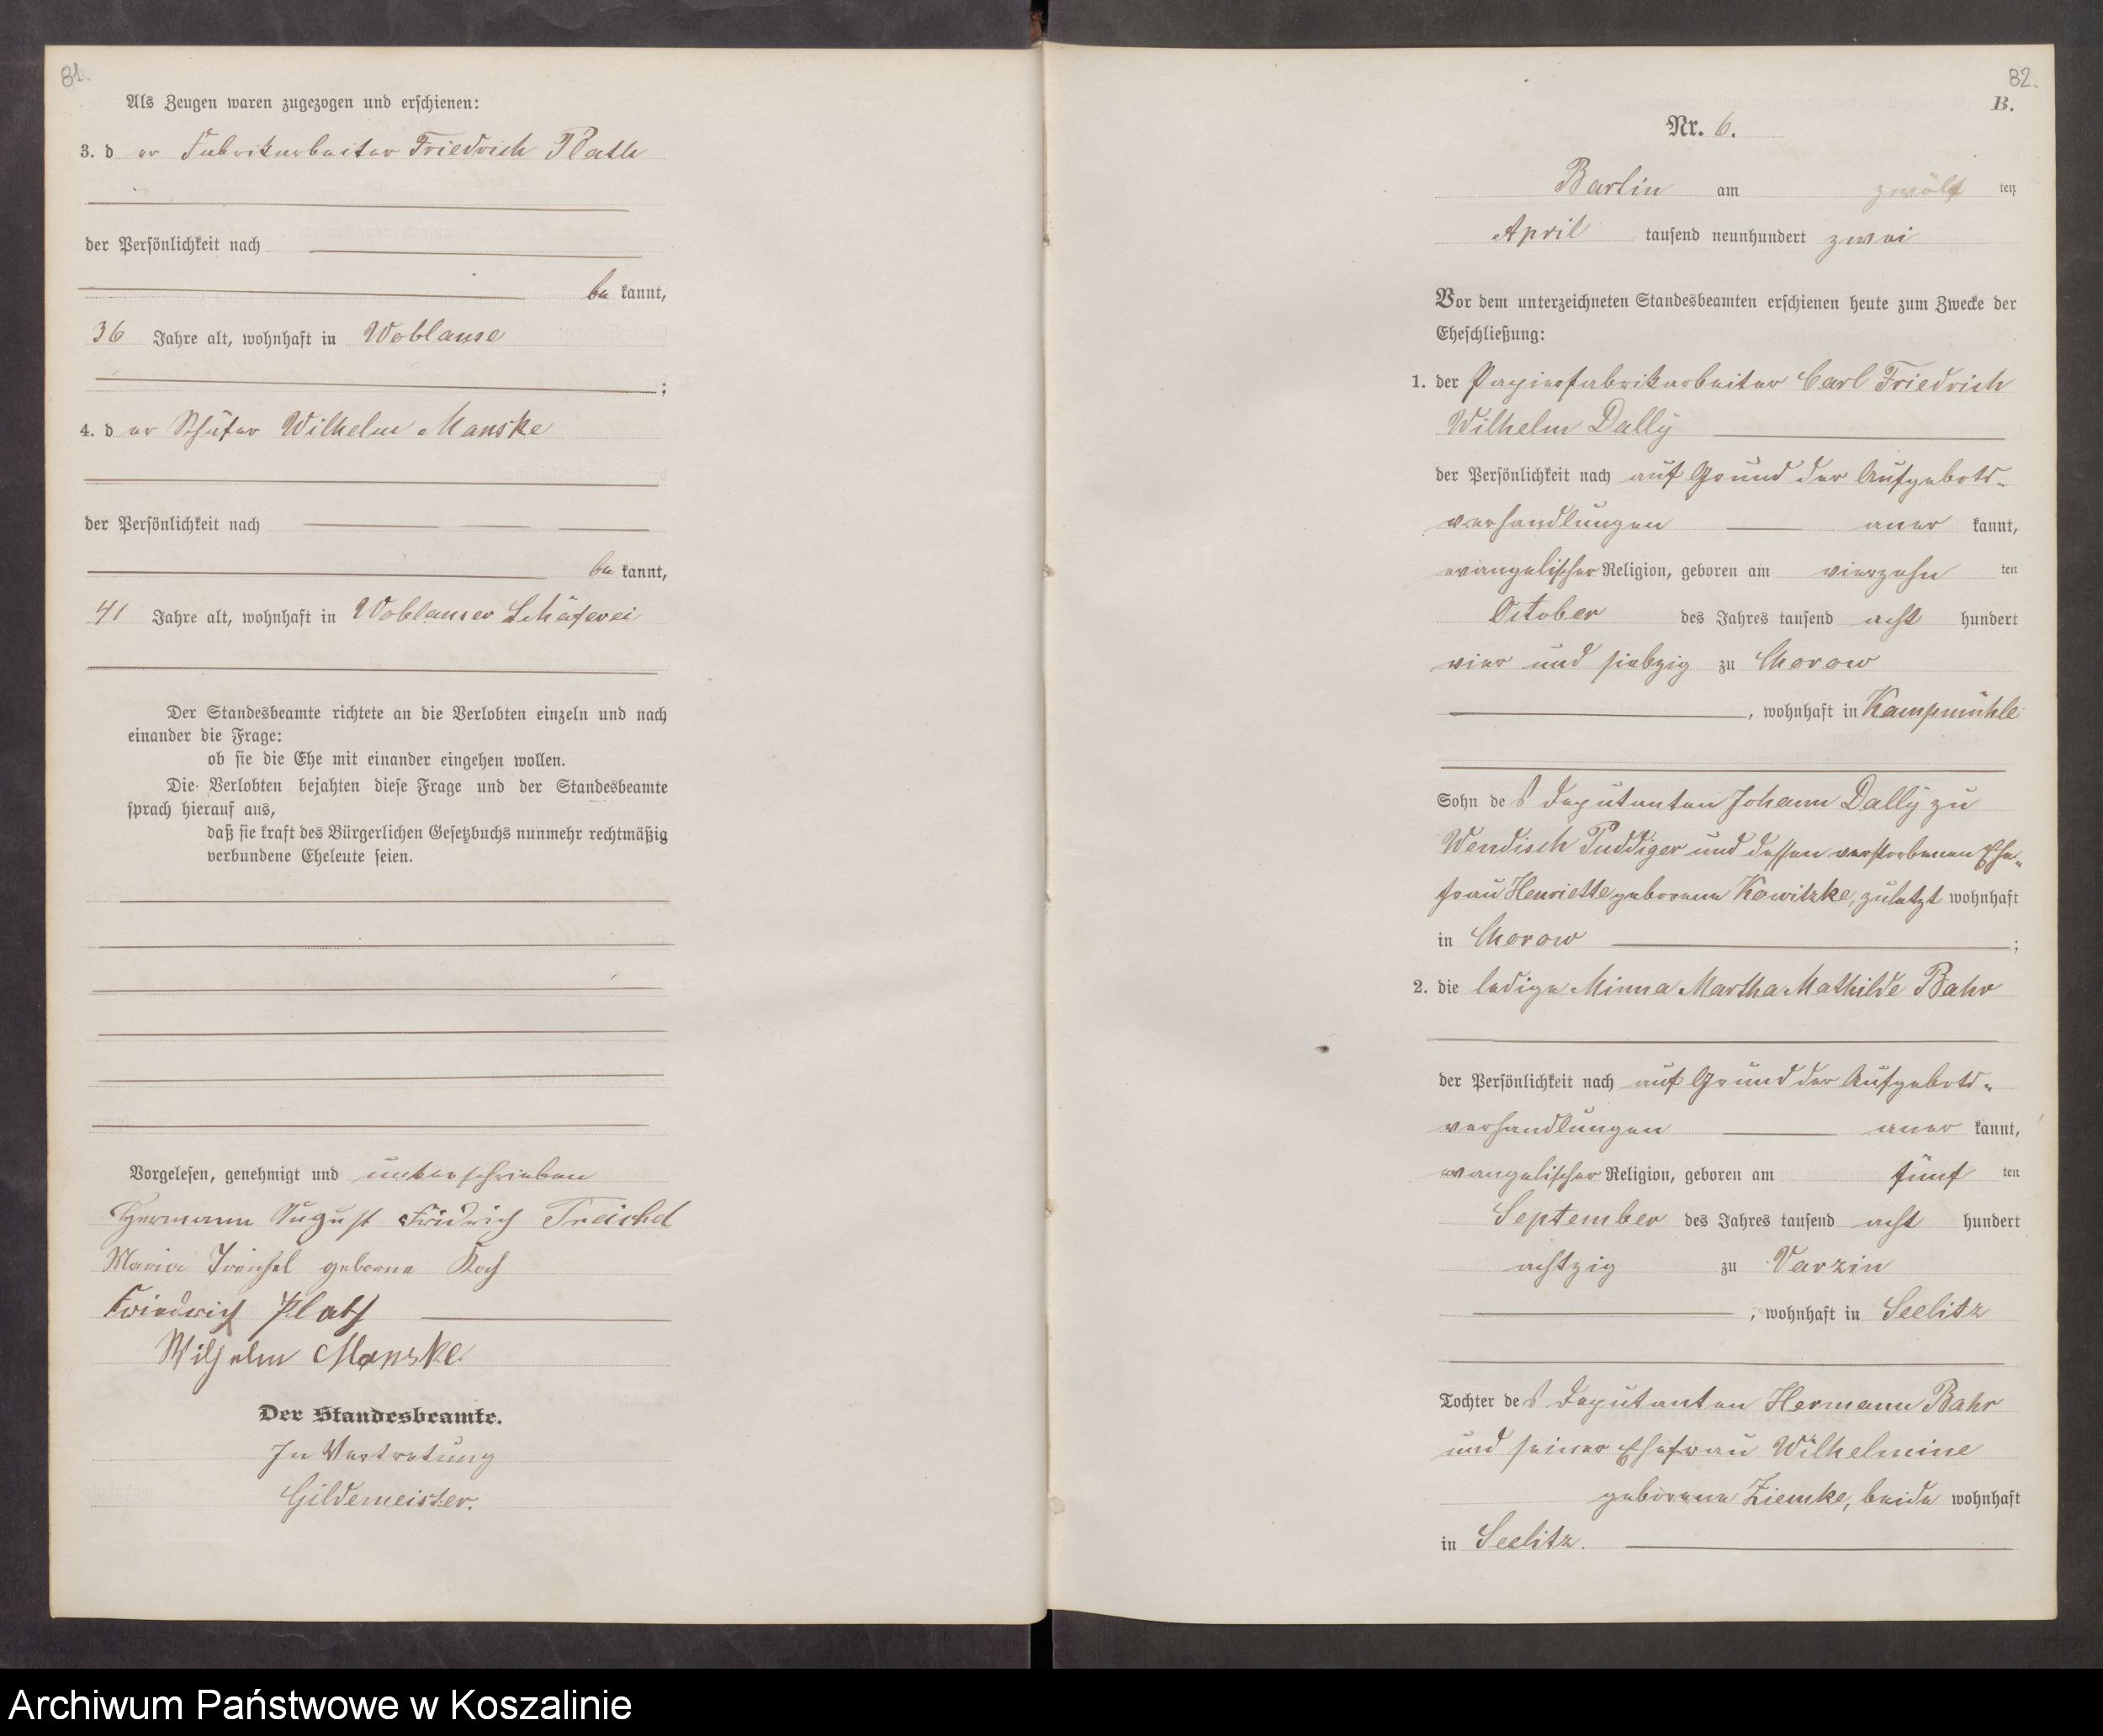 81.
Als Zeugen waren zugezogen und erschienen:
3. d er Fabrikarbeiter Friedrich Plath
der Persönlichkeit nach
be kannt,
36 Jahre alt, wohnhaft in Woblanse
;
4. d er Schäfer Wilhelm Manske
der Persönlichkeit nach
be kannt,
41 Jahre alt, wohnhaft in Woblanser Schäferei
Der Standesbeamte richtete an die Verlobten einzeln und nach
einander die Frage:
ob sie die Ehe mit einander eingehen wollen.
Die Verlobten bejahten diese Frage und der Standesbeamte
sprach hierauf aus,
daß sie kraft des Bürgerlichen Gesetzbuchs nunmehr rechtmäßig
verbundene Eheleute seien.
Vorgelesen, genehmigt und unterschrieben
Hermann August Fridrich Treichel
Maria Treichel geborne Koch
Friedrich Plath
Wilhelm Manske.
Der Standesbeamte.
In Vertretung
Gildemeister.
82.
B.
Nr. 6.
Bartin am zwölf ten
April tausend neunhundert zwei
Vor dem unterzeichneten Standesbeamten erschienen heute zum Zwecke der
Eheschließung:
1. der Papierfabrikarbeiter Carl Friedrich
Wilhelm Dally
der Persönlichkeit nach auf Grund der Aufgebots-
verhandlungen aner kannt,
evangelischer Religion, geboren am vierzehn ten
October des Jahres tausend acht hundert
vier und siebzig zu Chorow
, wohnhaft in Kampmühle
Sohn des Deputanten Johann Dally zu
Wendisch Puddiger und dessen verstorbenen Ehe-
frau Henriette geborene Kowitzke, zuletzt wohnhaft
in Chorow ;
2. die ledige Minna Martha Mathilde Bahr
der Persönlichkeit nach auf Grund der Aufgebots-
verhandlungen aner kannt,
evangelischer Religion, geboren am fünf ten
September des Jahres tausend acht hundert
achtzig zu Varzin
, wohnhaft in Seelitz
Tochter des Deputanten Hermann Bahr
und seiner Ehefrau Wilhelmine
geborene Ziemke, beide wohnhaft
in Seelitz.
Archiwum Państwowe w Koszalinie